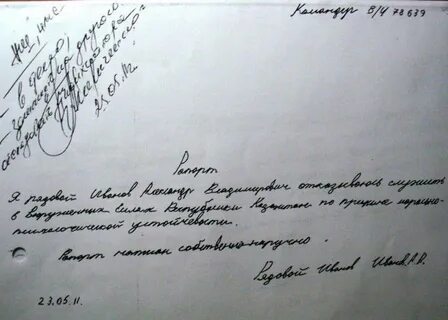 Командер В/Ч 78639
в дело
другого
25.05.11г
Рапорт
Я рядовой Иванов Александр Владимирович отказываюсь служить
в Вооруженных Силах Республики Казахстан по причине морально-
психологической устойчевости.
Рапорт написан собственно-наручно.
Рядовой Иванов Иванов А.В.
23.05.11.